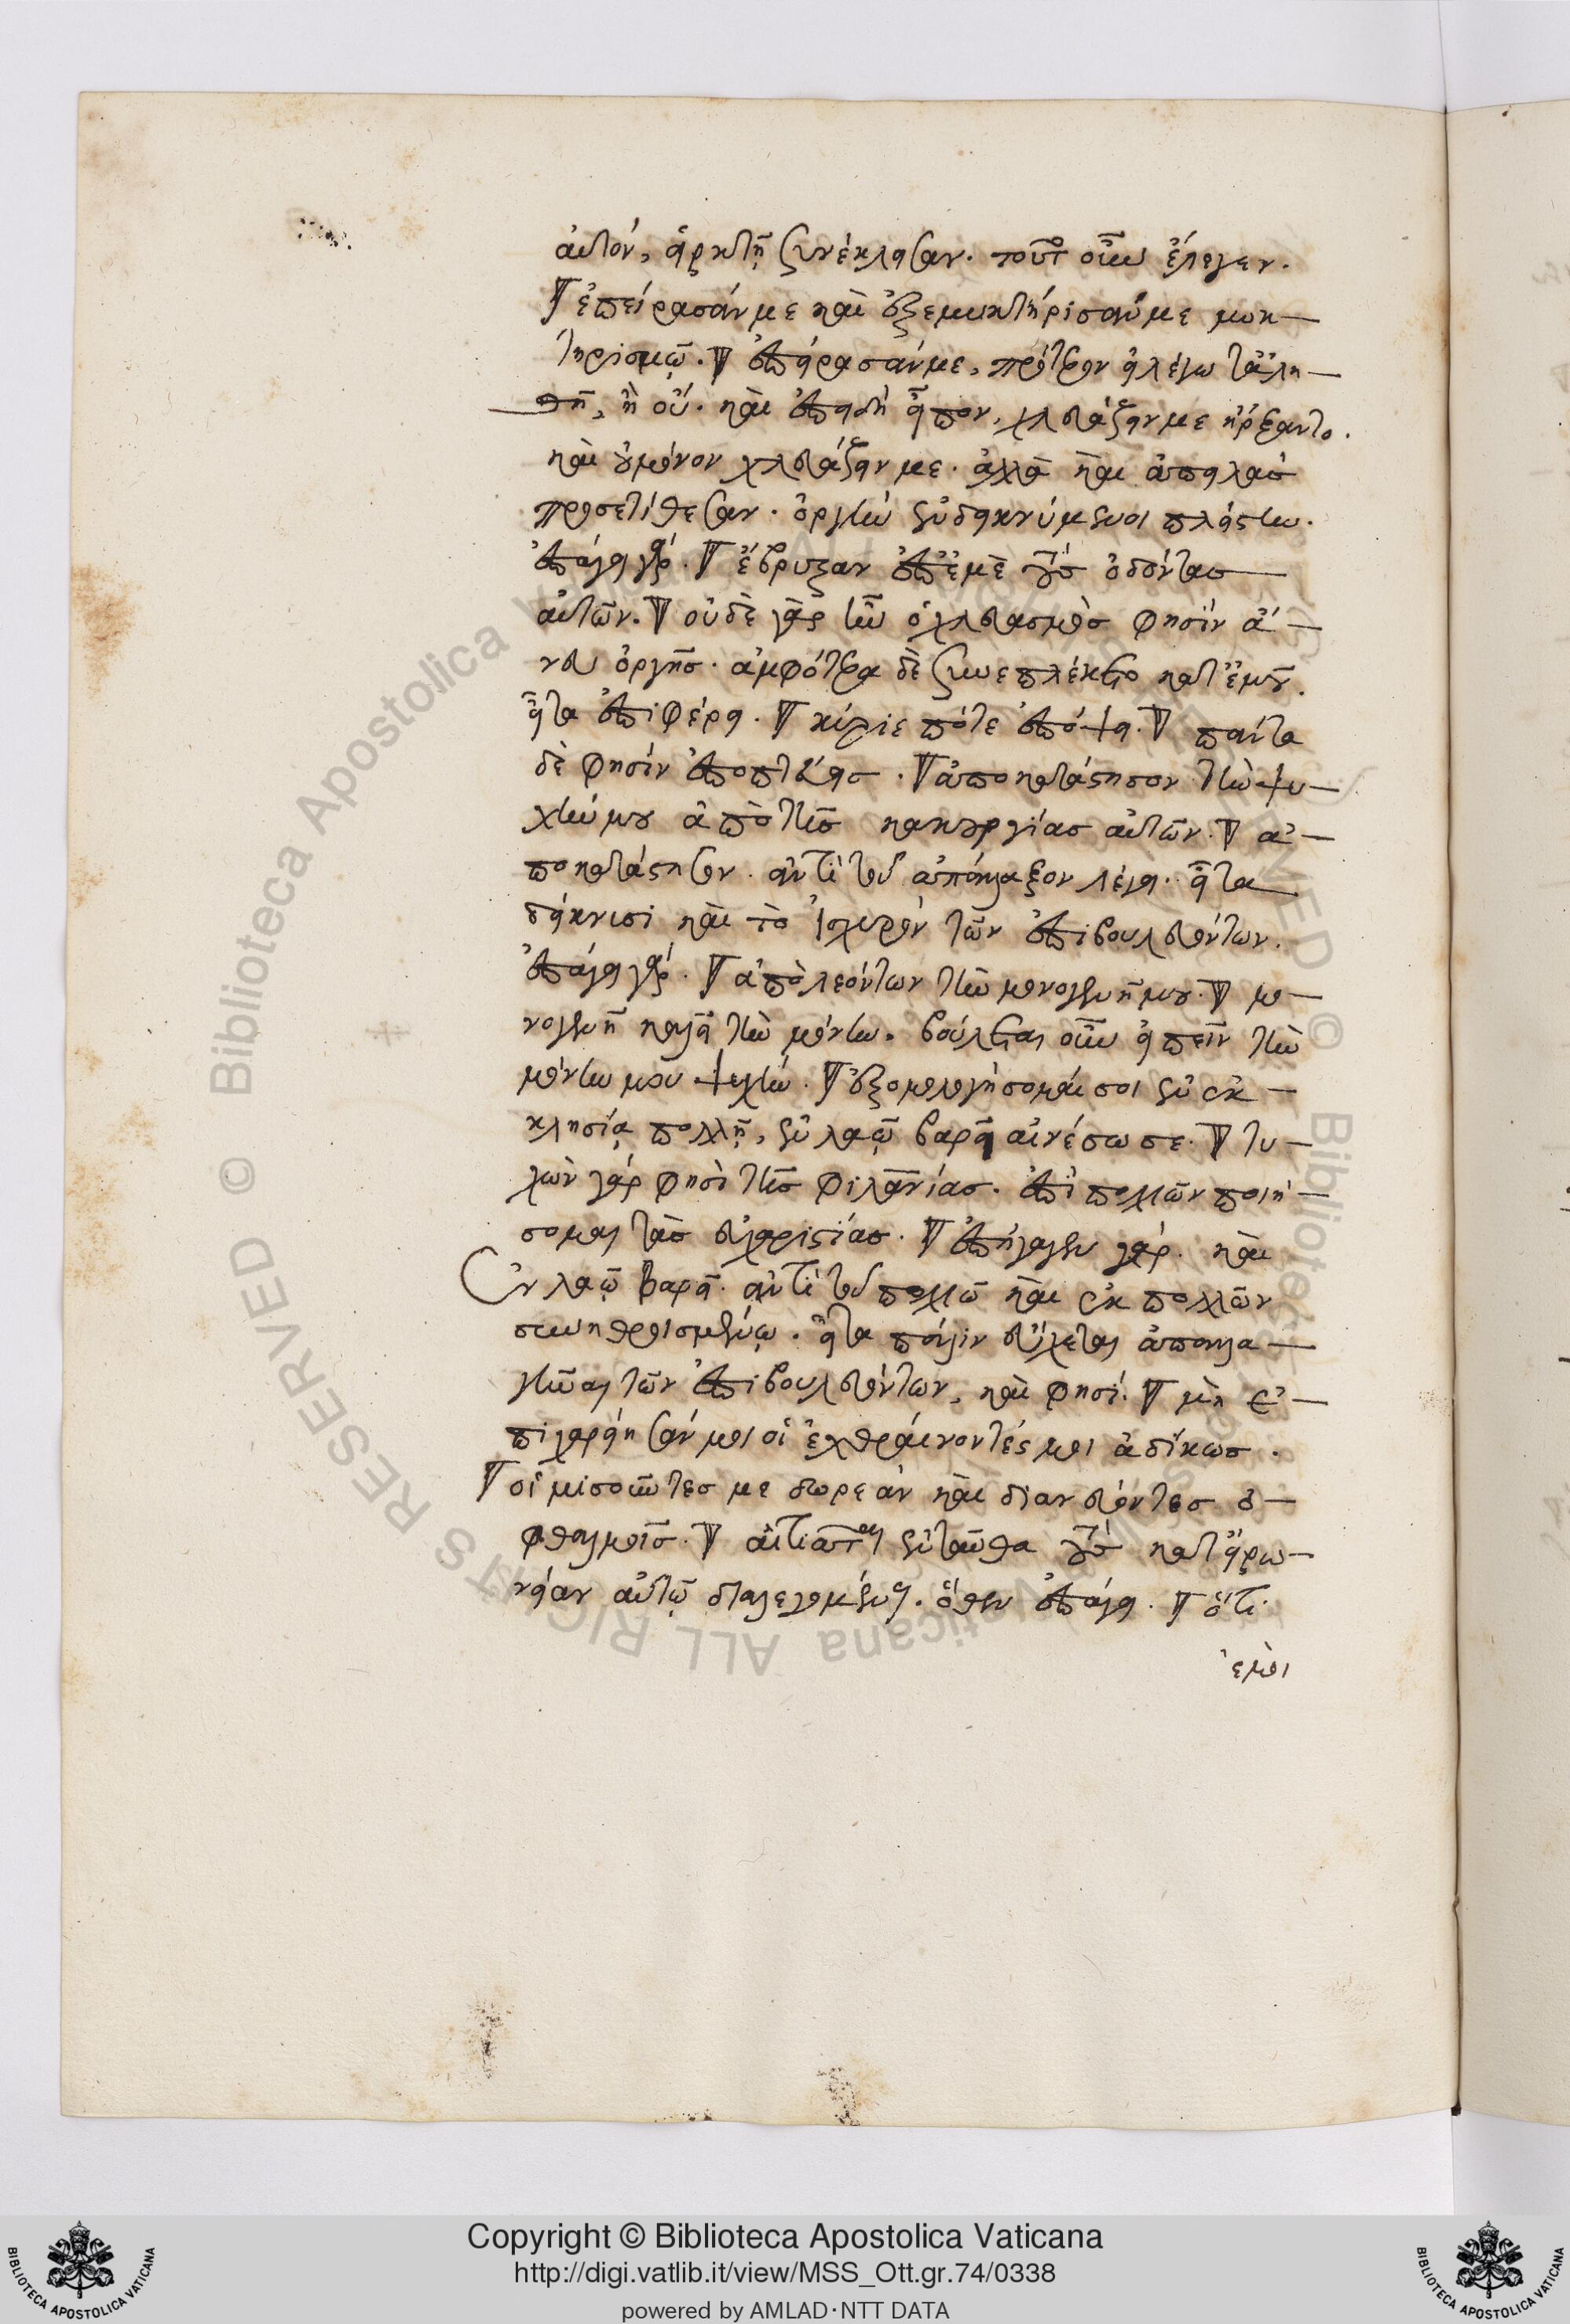 αὐτὸν, εἱρκτῇ συνέκλεισαν. τοῦτο οὖν ἔλεγεν.
ἐπείρασάν με καὶ ἐξεμυκτήρισάν με μυκ
τηρισμῷ. ἐπείρασάν με, πρότερον εἰ λέγω τἀλη
θῆ, ἢ οὔ. καὶ ἐπειδὴ εἶπον, χλευάζειν με ἤρξαντο.
καὶ οὐ μόνον χλευάζειν με. ἀλλὰ καὶ ἀπειλὰς
προσετίθεσαν. ὀργὴν ἐνδεικνύμενοι πλείστην.
ἐπάγει γάρ. ἔβρυξαν ἐπ' ἐμὲ τοὺς ὀδόντας
αὐτῶν. οὐδὲ γὰρ ἦν ὁ χλευασμὸς φησὶν ἄ
νευ ὀργῆς. ἀμφότερα δὲ συνεπλέκετο κατ' ἐμοῦ.
εἶτα ἐπιφέρει. κύριε πότε ἐπόψει. πάντα
δὲ φησὶν ἐποπτεύεις. ἀποκατάστησον τὴν ψυ
χήν μου ἀπὸ τῆς κακουργίας αὐτῶν. ἀ
ποκατάστησον. ἀντὶ τοῦ ἀπάλλαξον λέγει. εἶτα
δείκνυσι καὶ τὸ ἰσχυρὸν τῶν ἐπιβουλευόντων.
ἐπάγει γάρ. ἀπὸ λεόντων τὴν μονογενῆ μου. μο
νογενῆ καλεῖ τὴν μόνην. βούλεται οὖν εἰπεῖν τὴν
μόνην μου ψυχήν. ἐξομολογήσομαί σοι ἐν ἐκ
κλησίᾳ πολλῇ, ἐν λαῷ βαρεῖ αἰνέσω σε. τυ
χὼν γάρ φησὶ τῆς φιλανίας. ἐπὶ πολλῶν ποιή
σομαι τὰς εὐχαριστίας. ἐπήγαγεν γάρ. καὶ
ἐν λαῷ βαρεῖ. ἀντὶ τοῦ πολλῷ καὶ ἐκ πολλῶν
συνηθροισμένῳ. εἶτα πάλιν εὔχεται ἀπαλλα
γῆναι τῶν ἐπιβουλευόντων, καὶ φησί. μὴ ἐ
πιχαρείησάν μοι οἱ ἐχθραίνοντές μοι ἀδίκως.
οἱ μισοῦντες με δωρεὰν καὶ διανεύοντες ὀ
φθαλμοῖς. αἰτιᾶται ἐνταῦθα τοὺς κατ' εἰρω
νείαν αὐτῷ διαλεγομένους. ὅθεν ἐπάγει. ὅτι
ἐμοὶ
Copyright © Biblioteca Apostolica Vaticana
http://digi.vatlib.it/view/MSS_Ott.gr.74/0338
powered by AMLAD·NTT DATA